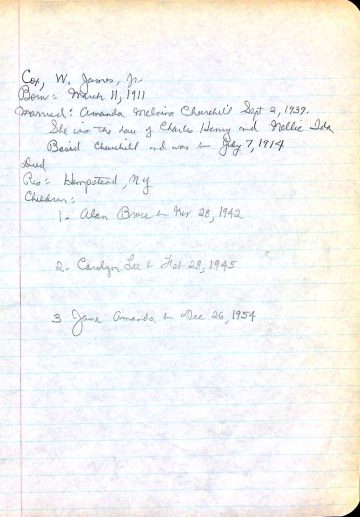 Cox, W. James, Jr
Born:- March 11, 1911
Married: Amanda Melvina Churchill Sept 2, 1939.
She was the dau of Charles Henry and Nellie Ida
Baird Churchill and was b July 7, 1914
Died
Res:- Hempstead, NY
Children:
1- Alan Bruce b Nov 28, 1942
2- Carolyn Lee b Feb 28, 1945
3 Jane Amanda b Dec 26, 1954